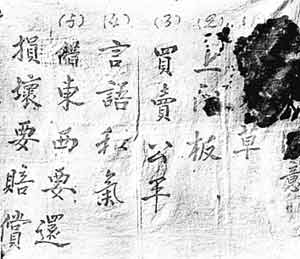 意
(1)草
(2)上门板
(3)買賣公平
(4)言語和氣
(5)借東西要還
損壞要賠償